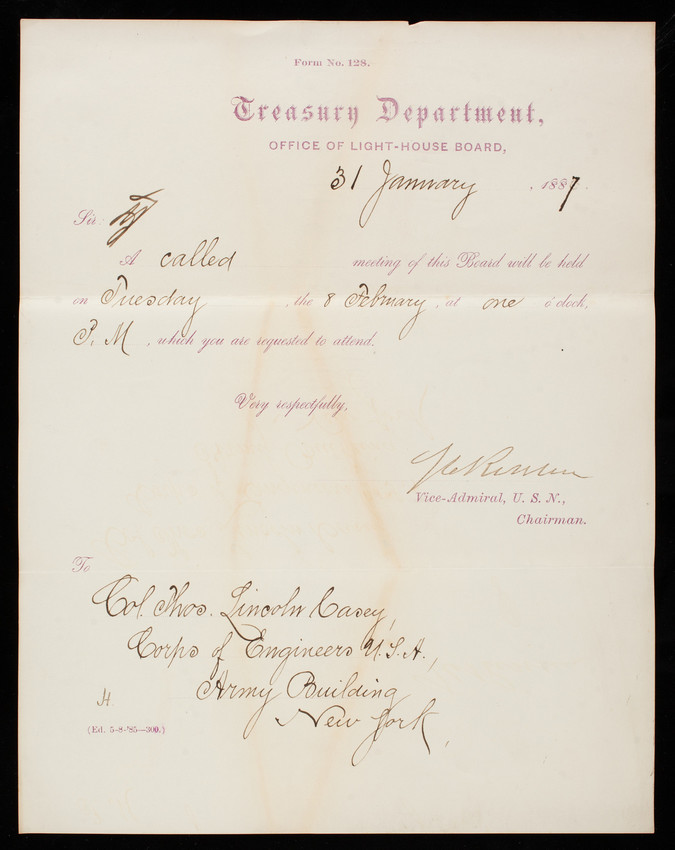 Form No. 128.
Treasury Department,
OFFICE OF LIGHT-HOUSE BOARD,
31 January, 1887.
Sir:
A called meeting of this Board will be held
on Tuesday, the 8 February, at one o'clock,
P. M., which you are requested to attend.
Very respectfully,
Vice-Admiral, U. S. N.,
Chairman.
To
Col. Thos. Lincoln Casey,
Corps of Engineers U.S.A.,
Army Building
New York,
H.
(Ed. 5-8-'85—300.)